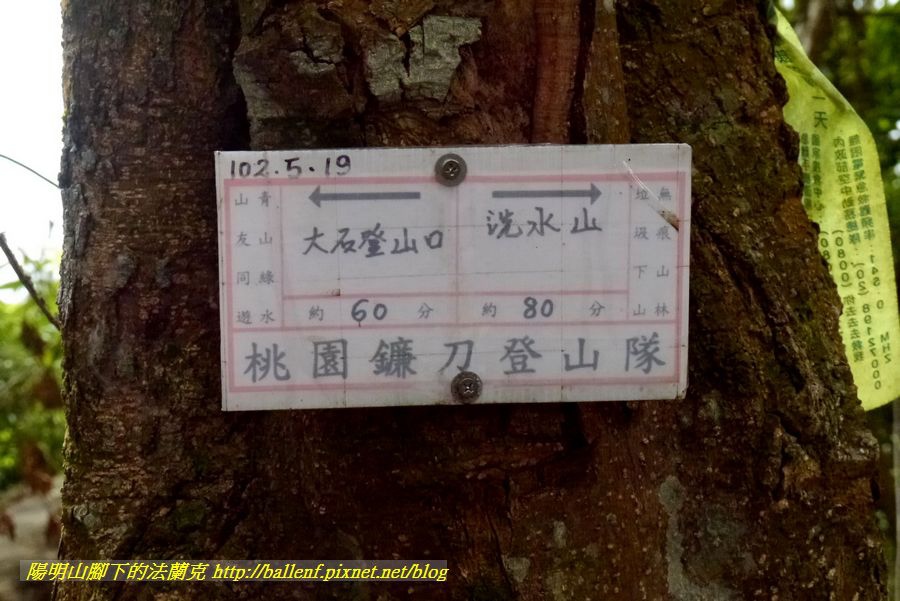 102.5.19
青山綠水
山友同遊
大石登山口
洗水山
無痕山林
垃圾下山
約 60 分
約 80 分
桃園鐮刀登山隊
一天
陽明山腳下的法蘭克 http://ballenf.pixnet.net/blog